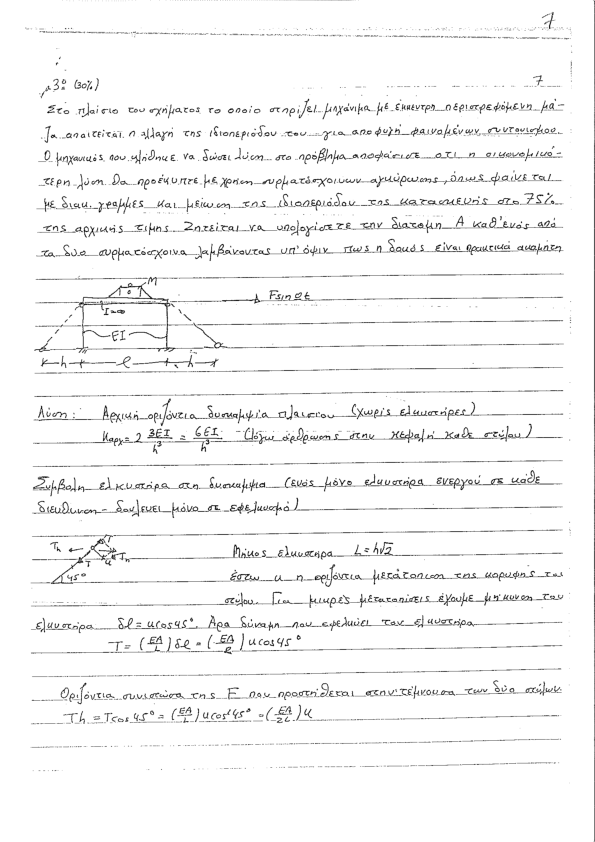 7
3ο (30%)
7
Στο πλαίσιο του σχήματος το οποίο στηρίζει μηχάνιμα με έκκεντρη περιστρεφόμενη μά-
ζα απαιτείται η αλλαγή της ιδιοπεριόδου του για αποφυγή φαινομένων συντονισμου.
Ο μηχανικός που κλήθηκε να δώσει λύση στο πρόβλημα αποφάσισε οτι η οικονομικό-
τερη λύση θα προέκυπτε με χρήση συρματόσχοινων αγκύρωσης, όπως φαίνεται
με διακ. γραμμές και μείωση της ιδιοπεριόδου της κατασκευής στο 75%
της αρχικής τιμής. Ζητείται να υπολογίσετε την διατομη Α καθ'ενός από
τα δύο συρματόσχοινα λαμβάνοντας υπ'όψιν πως η δοκός είναι πρακτικά ακαμπτη
M
F sin Ωt
I=∞
EI
h l h
Λύση: Αρχική οριζόντια δυσκαμψία πλαισίου (χωρίς ελκυστήρες)
Kαρχ = 2 3EI/h³ = 6EI/h³ (λόγω άρθρωσης στην κεφαλή κάθε στύλου)
Συμβολη ελκυστήρα στη δυσκαμψια (ενός μόνο ελκυστήρα ενεργού σε κάθε
διευθυνση - δουλευει μόνο σε εφελκυσμό)
Th T T u Th
45°
Μήκος ελκυστήρα L=h√2
έστω u η οριζόντια μετάτοπιση της κορυφής του
στύλου. Για μικρές μετατοπίσεις έχουμε μήκυνση του
ελκυστήρα δl = u cos45°. Άρα δύναμη που εφελκύει τον ελκυστήρα
T = (EA/L) δl = (EA/l) u cos45°
Οριζόντια συνιστώσα της F που προστήθεται στην τέμνουσα των δύο στύλων
Th = T cos 45° = (EA/L) u cos²45° = (EA/2L) u